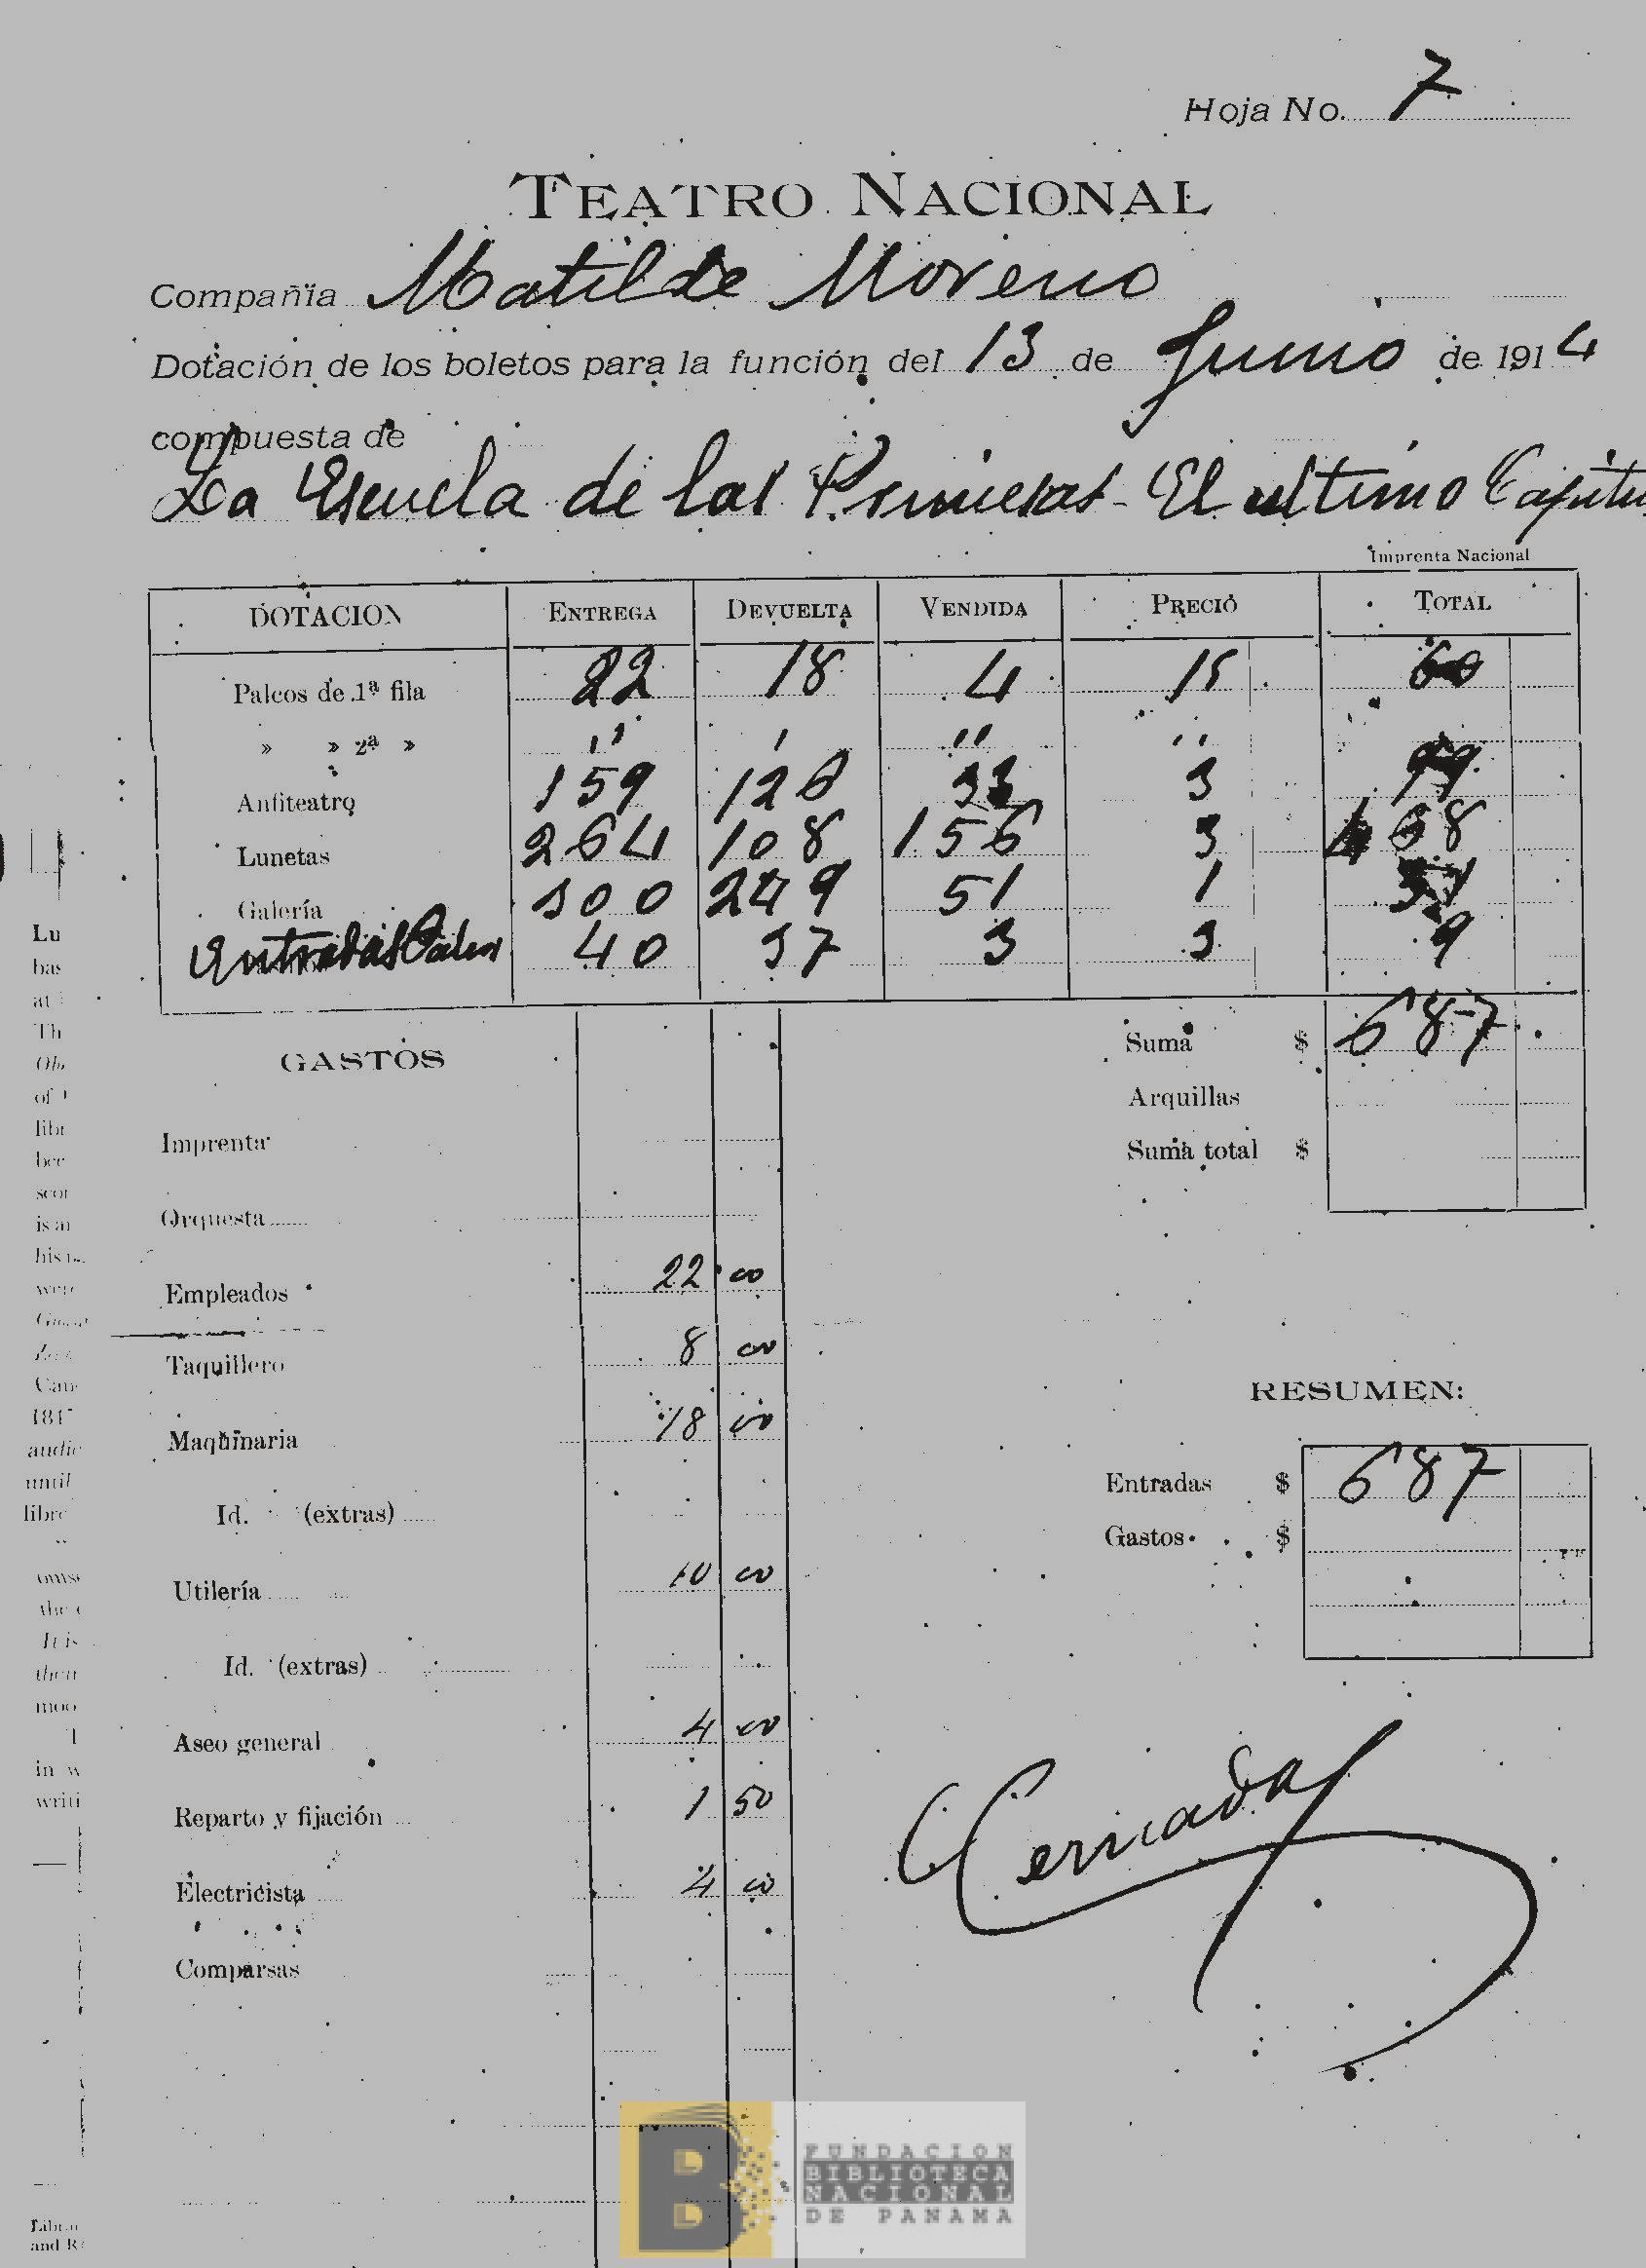 Hoja No. 7
TEATRO NACIONAL
Compañia Matilde Moreno
Dotación de los boletos para la función del 13 de Junio de 1914
compuesta de
La Escuela de las Princesas - El ultimo Capitu
Imprenta Nacional
DOTACION ENTREGA DEVUELTA VENDIDA PRECIO TOTAL
Palcos de 1ª fila 22 18 4 15 60
» » 2ª » " " " "
Anfiteatro 159 126 33 3 99
Lunetas 264 108 156 3 468
Galería 300 249 51 1 51
Entradas Palcos 40 37 3 3 9
Suma $ 687
Arquillas
Suma total $
GASTOS
Imprenta
Orquesta
Empleados 22 00
Taquillero 8 00
Maquinaria 18 00
Id. (extras)
Utilería 10 00
Id. (extras)
Aseo general 4 00
Reparto y fijación 1 50
Electricista 4 00
Comparsas
RESUMEN:
Entradas $ 687
Gastos $
Lu
bas
at
Th
of
libr
scor
were
Can
1817
audie
until
libre
It is
moo
in w
writi
and R
FUNDACION
BIBLIOTECA
NACIONAL
DE PANAMA